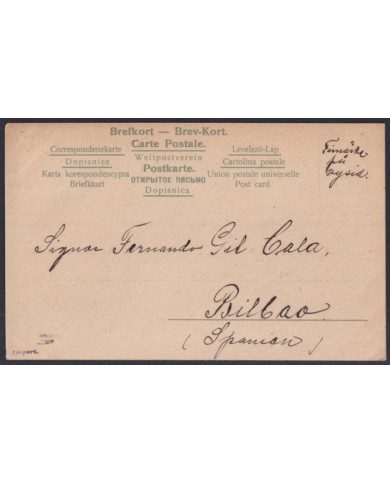 Brefkort — Brev-Kort.
Carte Postale.
Correspondenzkarte
Weltpostverein
Levelező-Lap
Dopisnice
Postkarte.
Cartolina postale
Karta korespondencyjna
ОТКРЫТОЕ ПИСЬМО
Union postale universelle
Briefkaart
Dopisnica
Post card
Frimärke
på
Signor Fernando Gil Cala,
Bilbao
(Spanien)